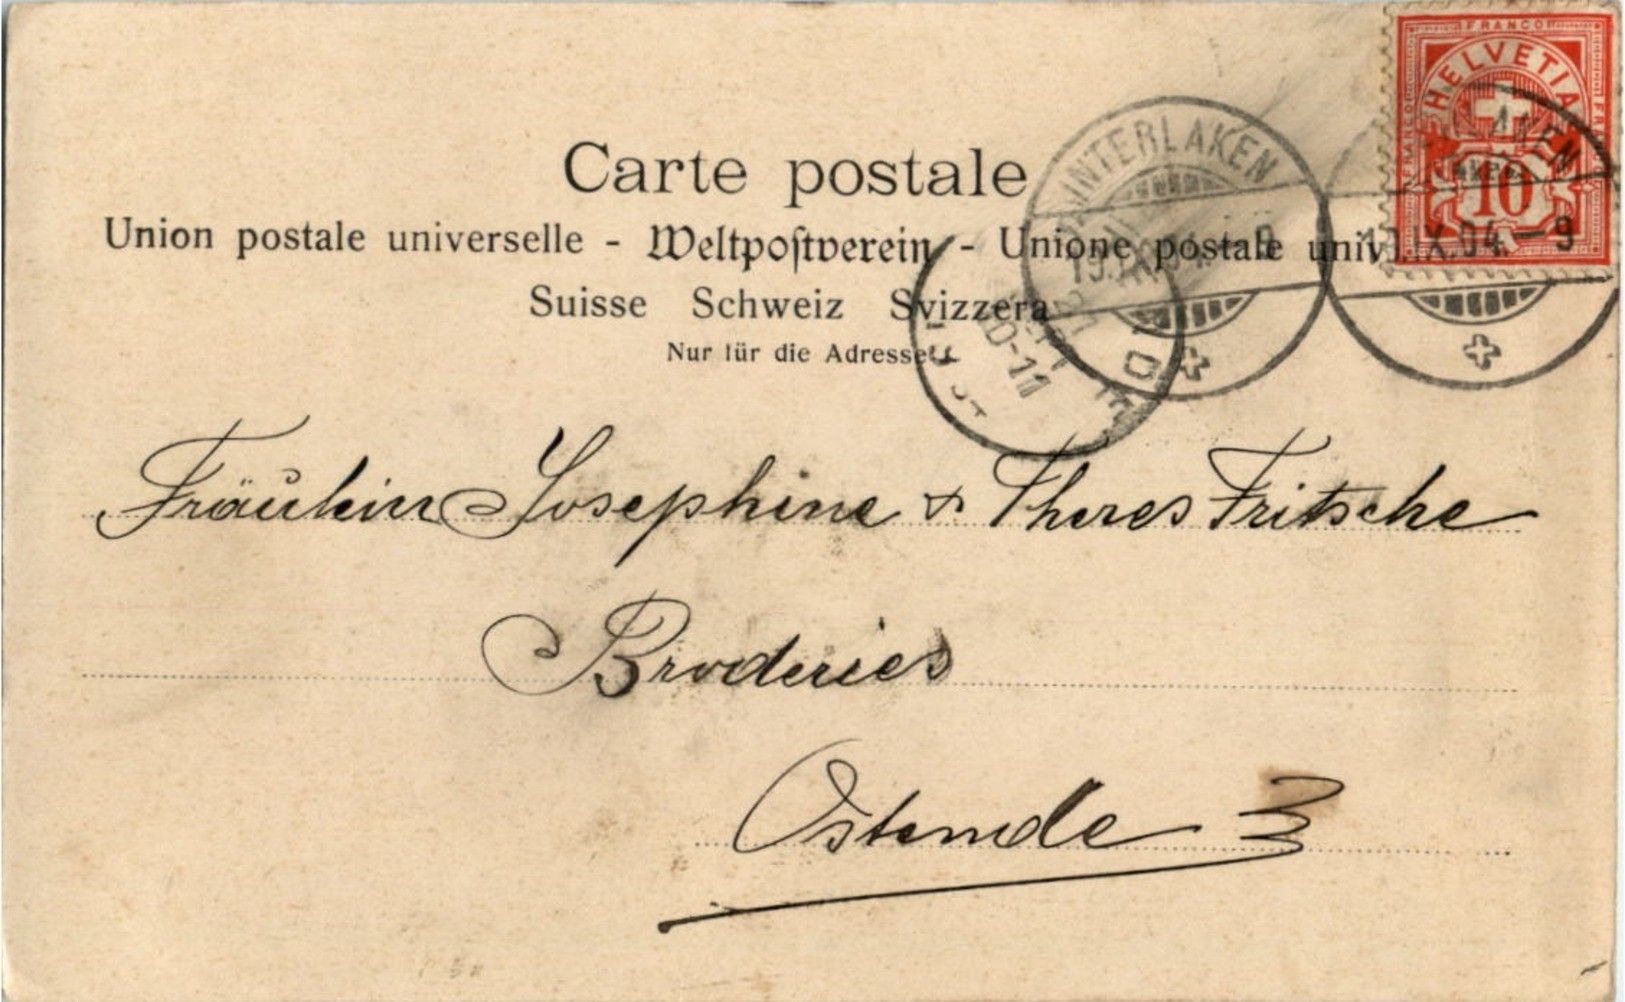 FRANCO
HELVETIA
FRANCO
10
Carte postale
INTERLAKEN
19.IX.04.-9
Union postale universelle - Weltpostverein - Unione postale
Suisse Schweiz Svizzera
Nur für die Adresse
Fräulein Josephine & Theres Fritsche
Broderies
Ostende